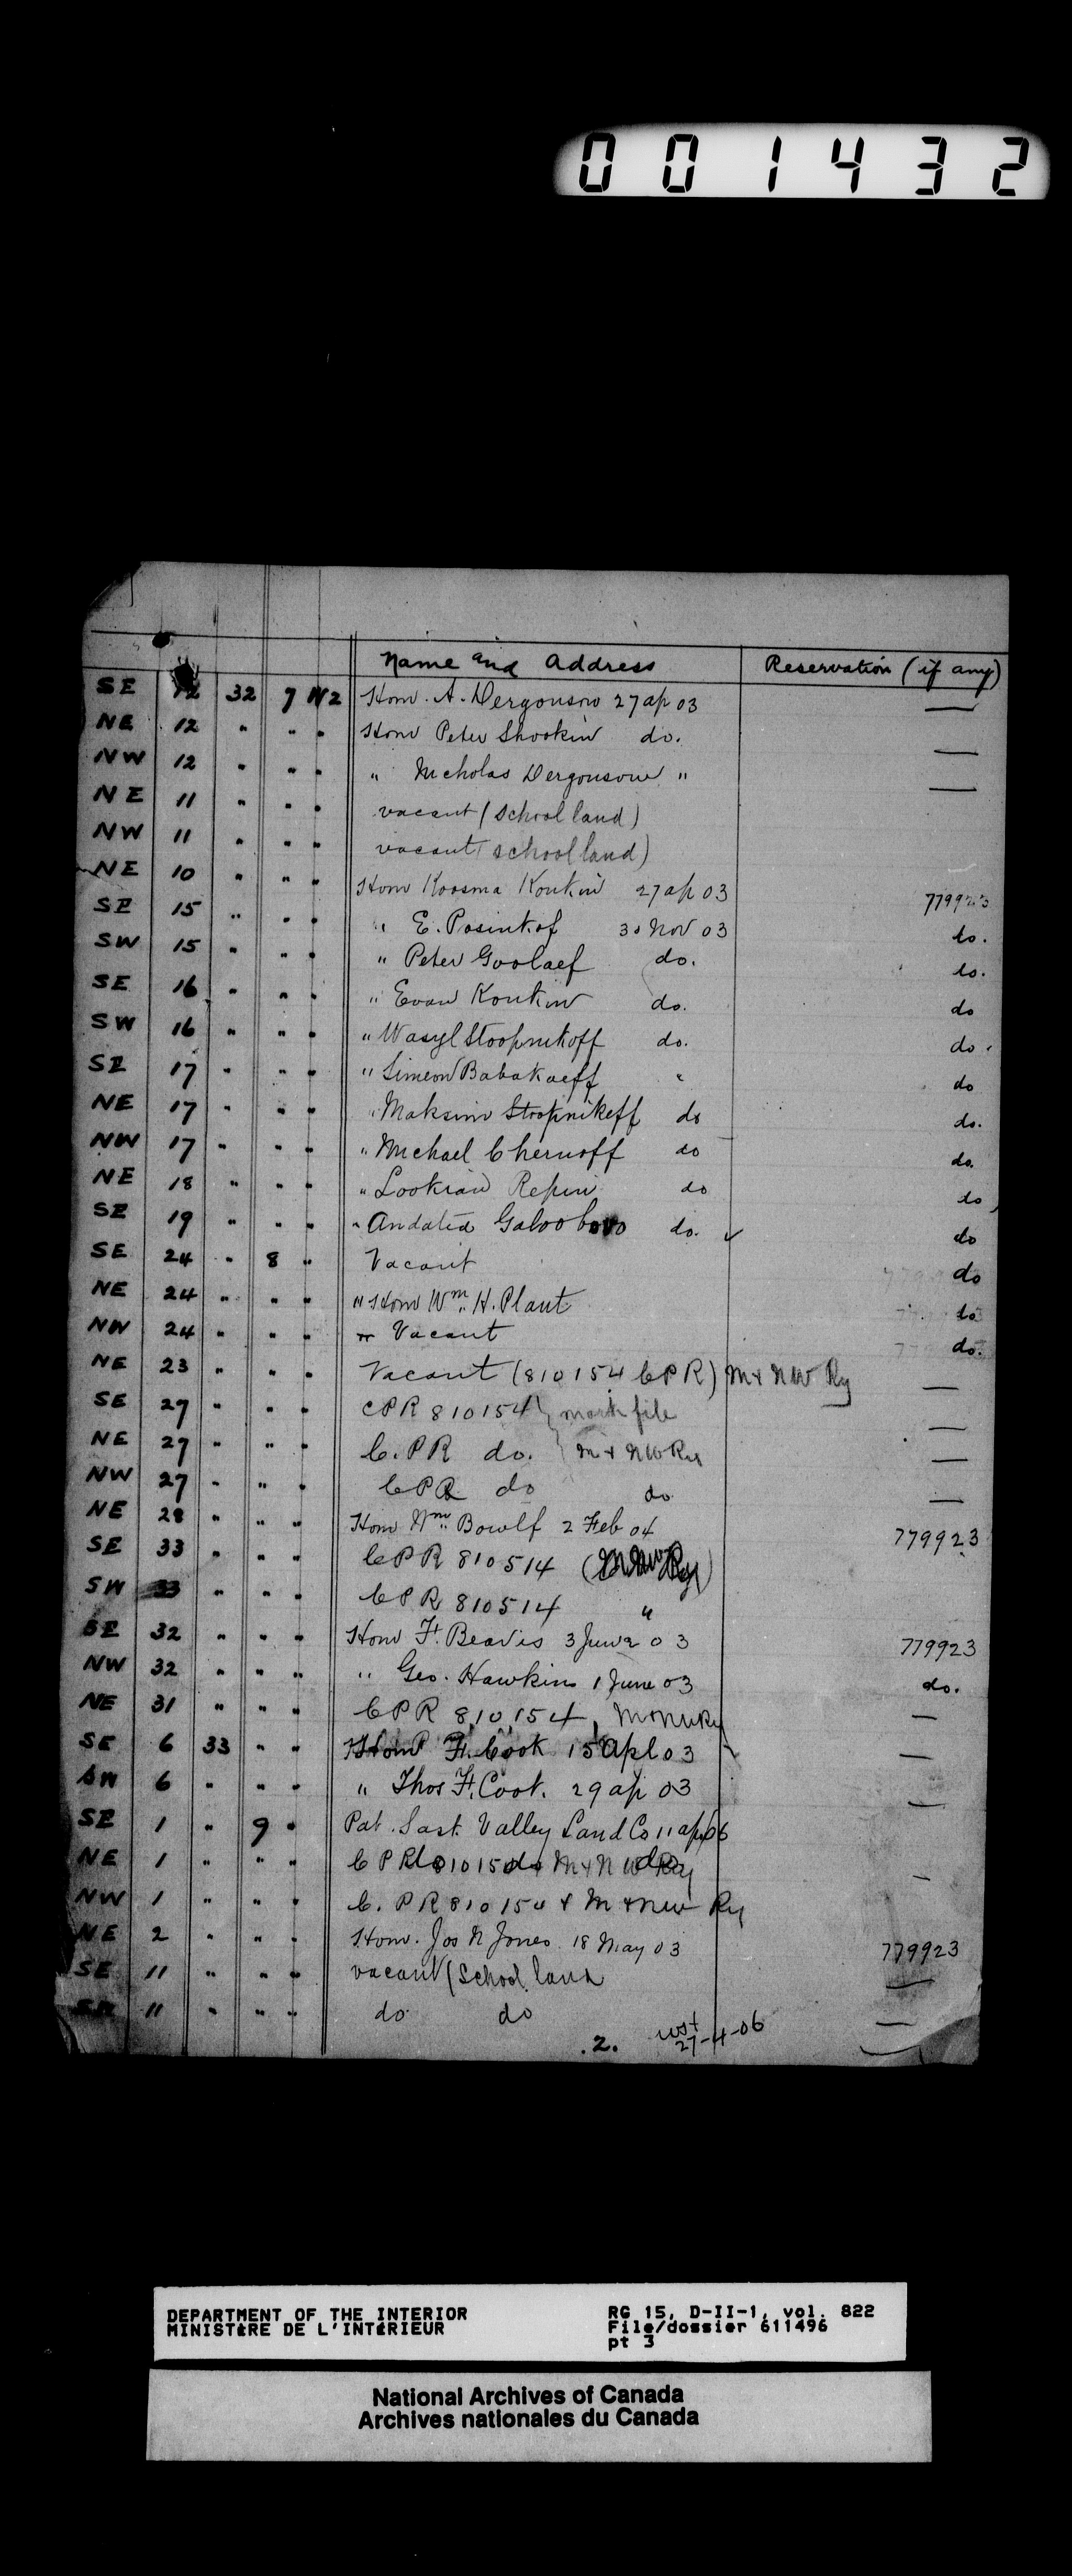 001432
Name and Address Reservation (if any)
SE 12 32 7 W2 Hom. A. Dergousow 27 ap 03 —
NE 12 " " " Hom Peter Shookin do. —
NW 12 " " " " Nicholas Dergousow " —
NE 11 " " " vacant (School land)
NW 11 " " " vacant (school land)
NE 10 " " " Hom Koosma Konkin 27 ap 03 779923
SE 15 " " " " E. Posinkof 30 Nov 03 do.
SW 15 " " " " Peter Goolaef do. do.
SE 16 " " " " Evan Konkin do. do
SW 16 " " " " Wasyl Stoopnikoff do. do.
SE 17 " " " " Simeon Babakaeff " do
NE 17 " " " " Maksim Stoopnikeff do do.
NW 17 " " " " Michael Chernoff do do.
NE 18 " " " " Lookian Repin do do
SE 19 " " " " do. ✓ do
SE 24 " 8 " Vacant do
NE 24 " " " " Hom Wm. H. Plant do
NW 24 " " " Vacant do.
NE 23 " " " Vacant (810154 CPR) M & NW Ry —
SE 27 " " " CPR 810154 } mark file —
NE 27 " " " C.PR do. } M & NW Ry —
NW 27 " " " CPR do do —
NE 28 " " " Hom Wm. Bowlf 2 Feb 04 779923
SE 33 " " " CPR 810514 (M&NW Ry)
SW 33 " " " CPR 810514 "
SE 32 " " " Hom F. Beavis 3 June 03 779923
NW 32 " " " " Geo. Hawkins 1 June 03 do.
NE 31 " " " CPR 810154, M&NWRy —
SE 6 33 " " Hom F. Cook 15 Apl 03 —
SW 6 " " " " Thos F. Cook. 29 ap 03 —
SE 1 " 9 " Pat. Sask. Valley Land Co 11 ap 06
NE 1 " " " CPR 810154 M & NW Ry —
NW 1 " " " C. PR 810154 & M & NW Ry
NE 2 " " " Hom. Jos N Jones 18 May 03 779923
SE 11 " " " vacant (School land —
11 " " " do do —
.2. 27-4-06
DEPARTMENT OF THE INTERIOR
MINISTÈRE DE L'INTÉRIEUR
RG 15, D-II-1, vol. 822
File/dossier 611496
pt 3
National Archives of Canada
Archives nationales du Canada